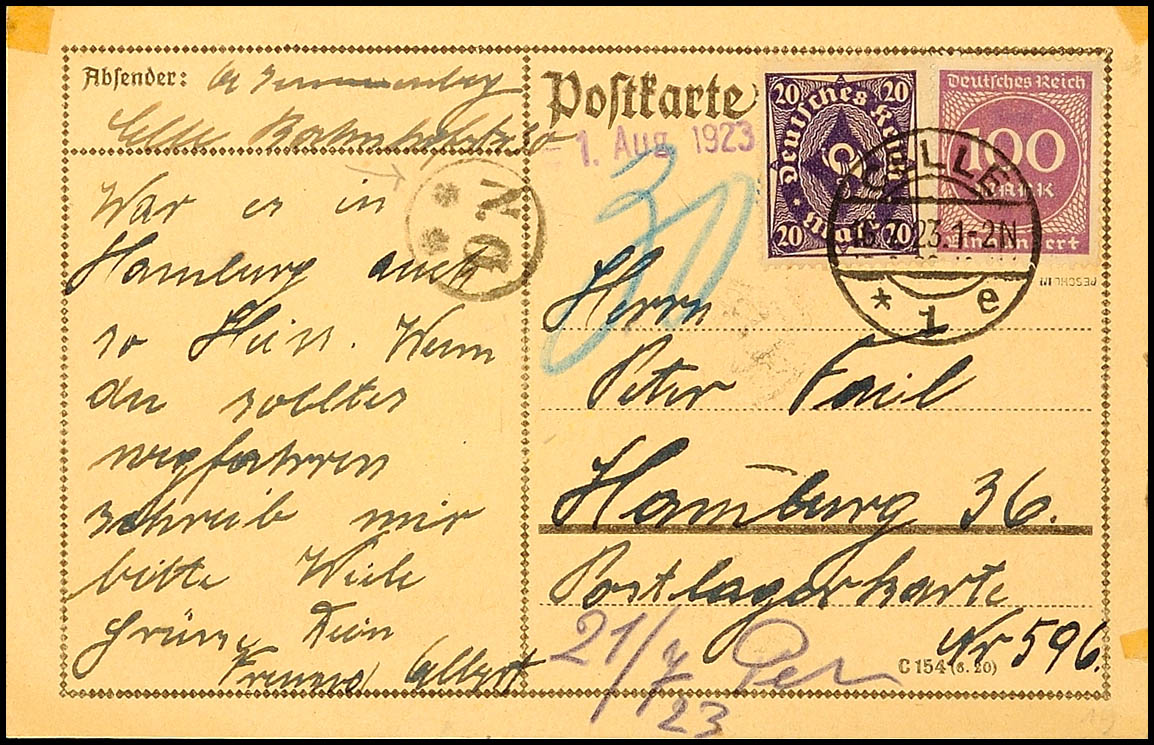 Absender:
Celle Bahnhofstr
War es in
Hamburg auch
so Heiss. Wenn
du solltes
wegfahren
schreib mir
bitte Viele
Grüsse Dein
Freund Albert
Postkarte
- 1. Aug. 1923
30
20 20
Deutsches Reich
Mark
20 20
Deutsches Reich
100
MARK
Einhundert
CELLE
23.1-2N
* 1 e
Herrn
Peter
Hamburg 36.
Postlagerkarte
Nr 596.
21/7
23
C 154 (6. 20)